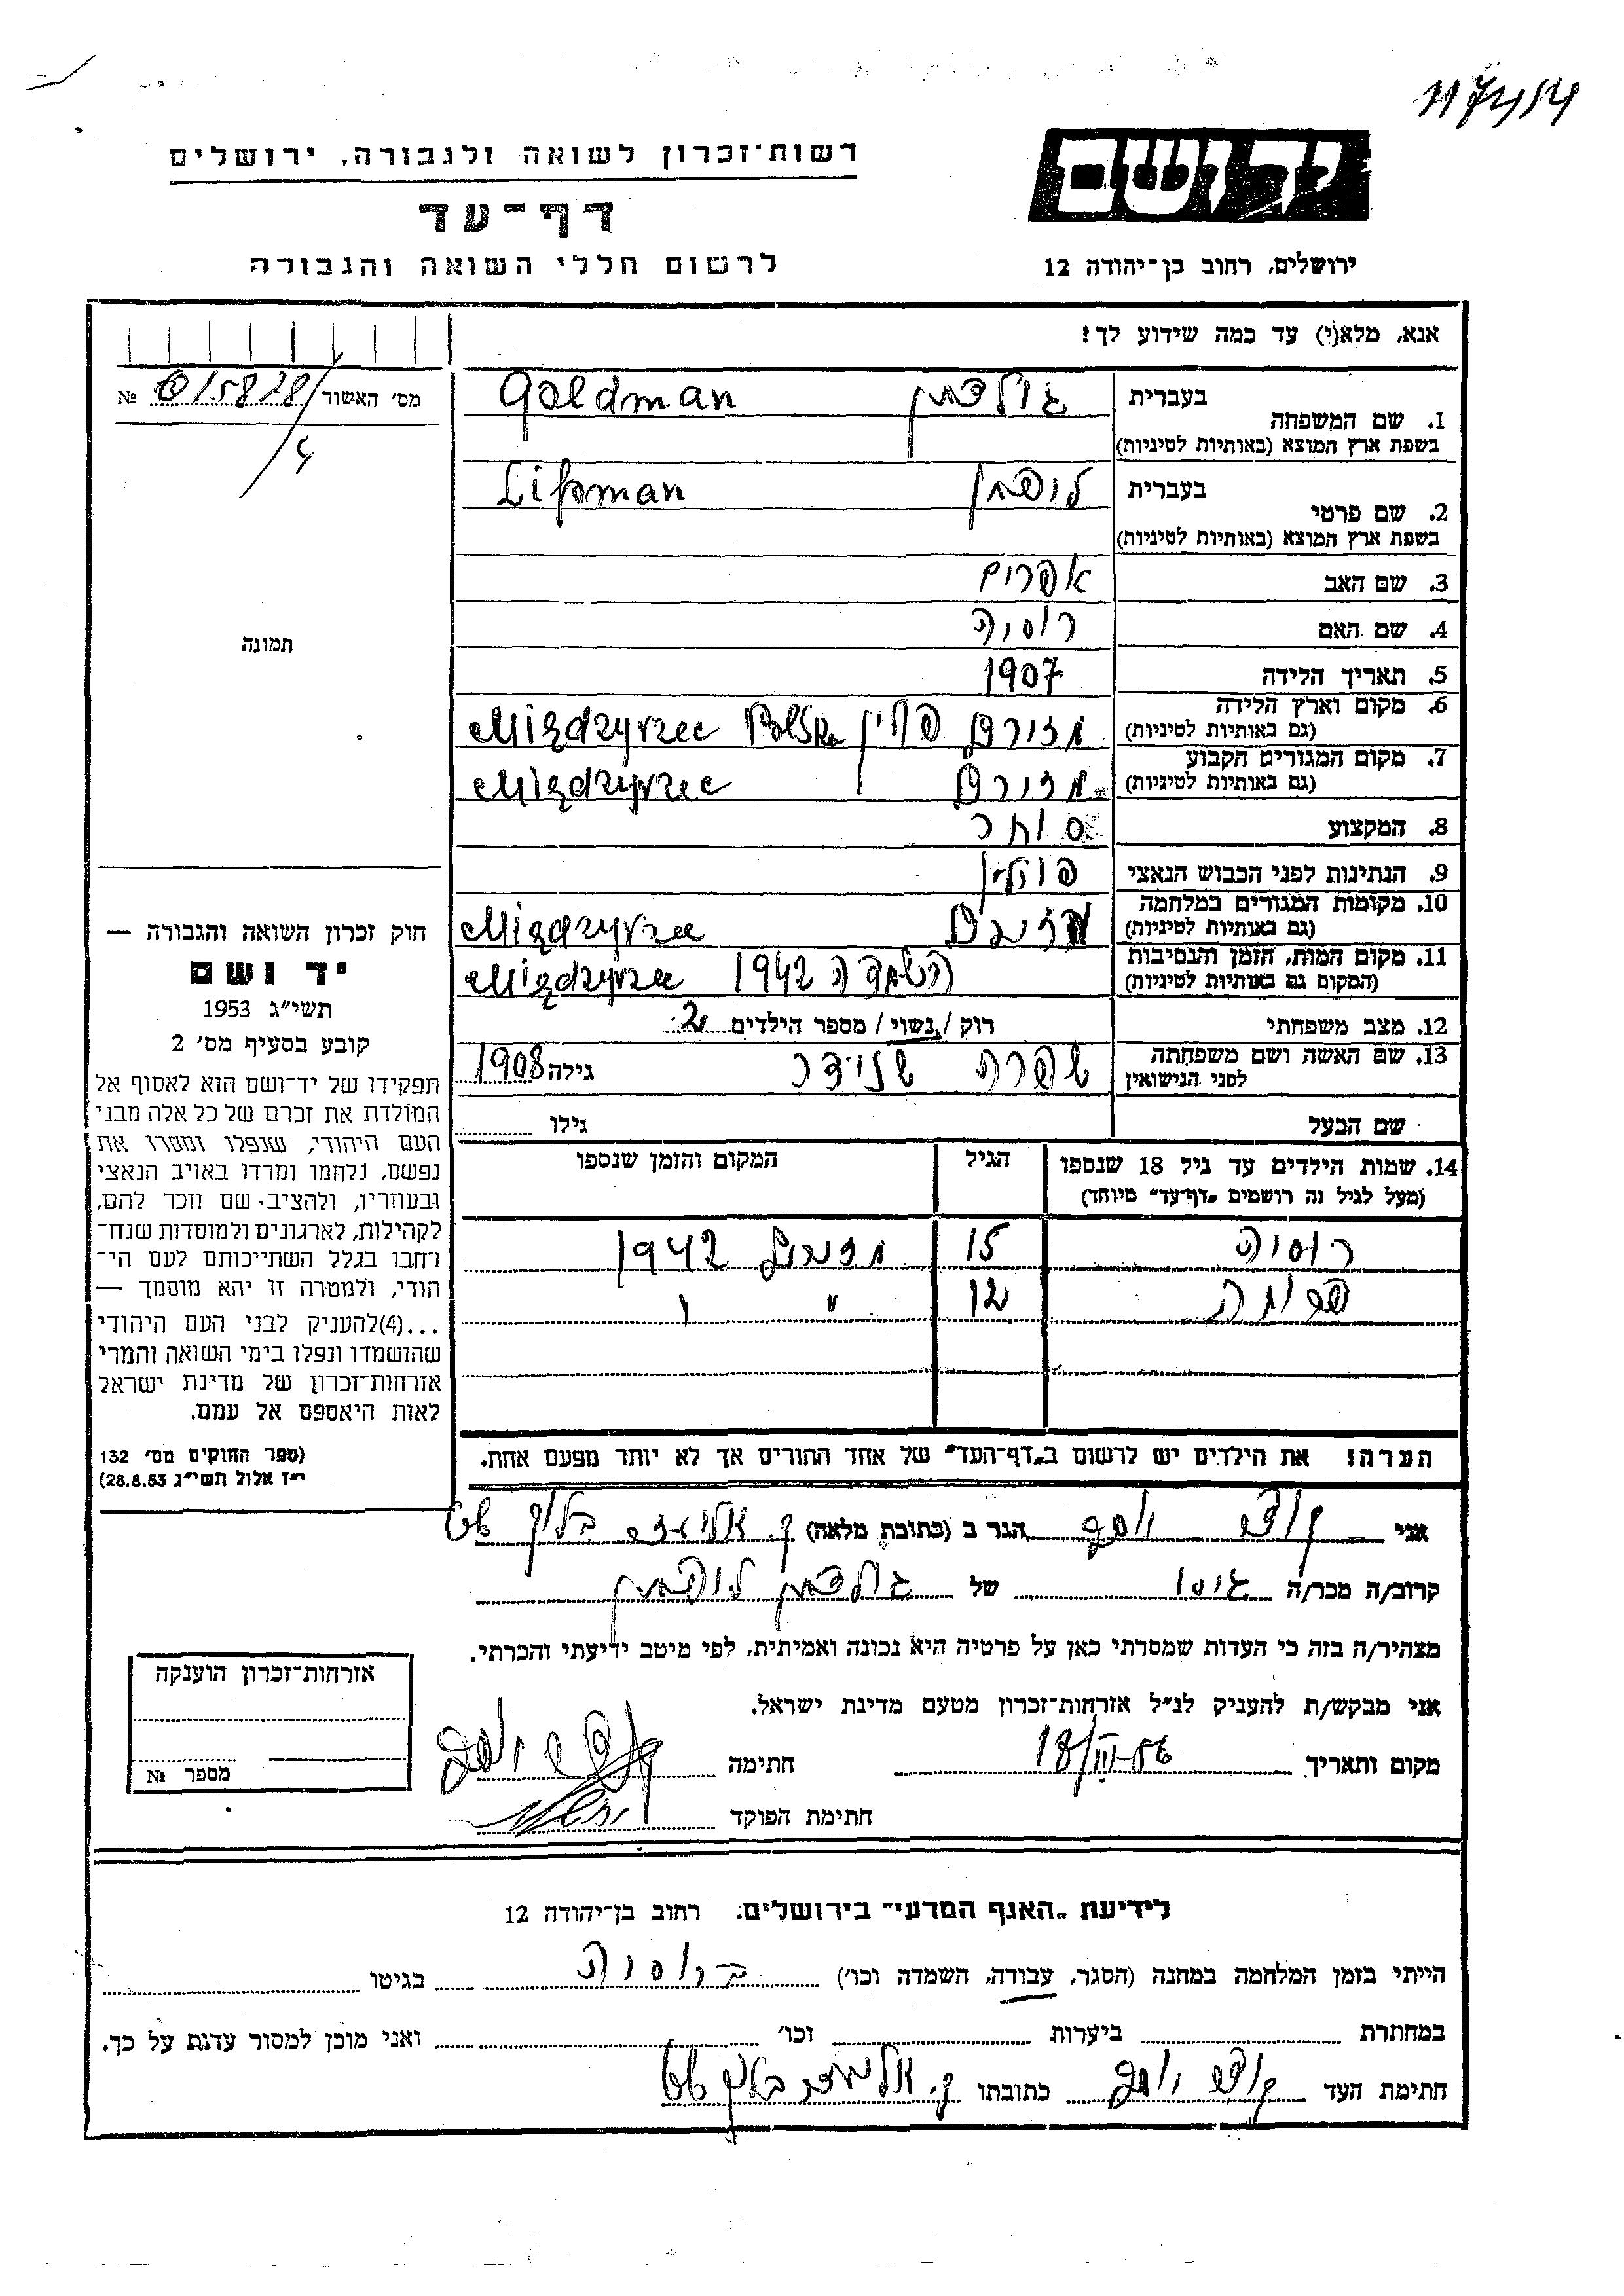 רשות־זכרון לשואה ולגבורה, ירושלים
דף־עד
לרשום חללי השואה והגבורה
יד ושם
ירושלים, רחוב בן־יהודה 12
אנא, מלא(י) עד כמה שידוע לך!
מס' האשור № 015828/4
תמונה
1. שם המשפחה בעברית גולדמן Goldman
בשפת ארץ המוצא (באותיות לטיניות)
2. שם פרטי בעברית ליפמן Lipman
בשפת ארץ המוצא (באותיות לטיניות)
3. שם האב אפרים
4. שם האם
5. תאריך הלידה 1907
6. מקום וארץ הלידה פולין Międzyrzec Polska
(גם באותיות לטיניות)
7. מקום המגורים הקבוע Międzyrzec
(גם באותיות לטיניות)
8. המקצוע סוחר
9. הנתינות לפני הכבוש הנאצי פולין
10. מקומות המגורים במלחמה Międzyrzec
(גם באותיות לטיניות)
11. מקום המות, הזמן והנסיבות השמדה 1942 Międzyrzec
(המקום גם באותיות לטיניות)
12. מצב משפחתי רוק / נשוי / מספר הילדים 2
13. שם האשה ושם משפחתה שפרה שניידר גילה 1908
לפני הנישואין
שם הבעל גילו
14. שמות הילדים עד גיל 18 שנספו הגיל המקום והזמן שנספו
(מעל לגיל זה רושמים "דף־עד" מיוחד)
15 1942
12 " "
הערה! את הילדים יש לרשום ב"דף־העד" של אחד ההורים אך לא יותר מפעם אחת.
חוק זכרון השואה והגבורה —
יד ושם
תשי"ג 1953
קובע בסעיף מס' 2
תפקידו של יד־ושם הוא לאסוף אל
המולדת את זכרם של כל אלה מבני
העם היהודי, שנפלו ומסרו את
נפשם, נלחמו ומרדו באויב הנאצי
ובעוזריו, ולהציב שם וזכר להם,
לקהילות, לארגונים ולמוסדות שנח־
רבו בגלל השתייכותם לעם הי־
הודי, ולמטרה זו יהא מוסמך —
...(4)להעניק לבני העם היהודי
שהושמדו ונפלו בימי השואה והמרי
אזרחות־זכרון של מדינת ישראל
לאות היאספם אל עמם.
(ספר החוקים מס' 132
י"ז אלול תשי"ג 28.8.53)
אני יוסף הגר ב (כתובת מלאה) ק.
קרוב/ה מכר/ה גיסו של גולדמן ליפמן
מצהיר/ה בזה כי העדות שמסרתי כאן על פרטיה היא נכונה ואמיתית, לפי מיטב ידיעתי והכרתי.
אני מבקש/ת להעניק לנ"ל אזרחות־זכרון מטעם מדינת ישראל.
מקום ותאריך 18/III-56 חתימה
חתימת הפוקד
אזרחות־זכרון הוענקה
מספר №
לידיעת "האגף המדעי" בירושלים, רחוב בן־יהודה 12
הייתי בזמן המלחמה במחנה (הסגר, עבודה, השמדה וכו') ברוסיה בגיטו
במחתרת ביערות וכו' ואני מוכן למסור עדות על כך.
חתימת העד יוסף כתובתו ק.